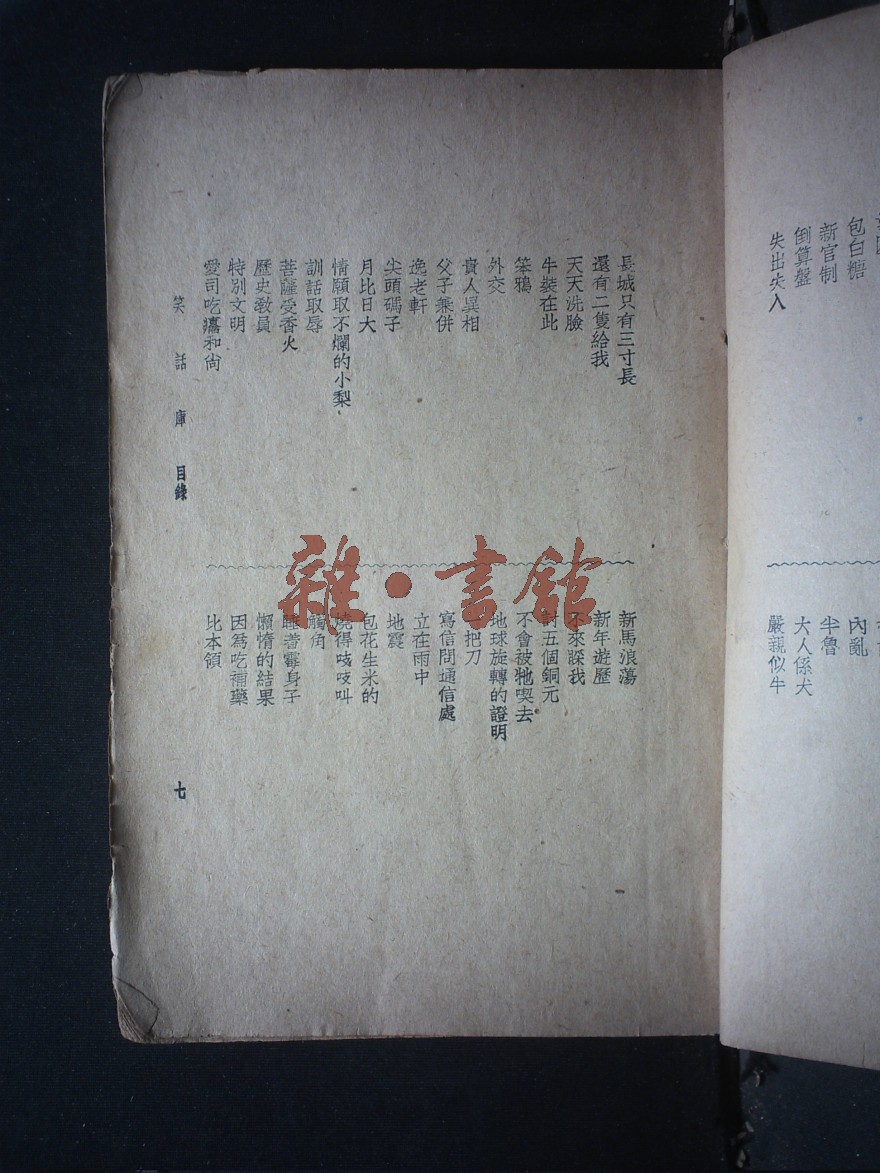 包白糖
新官制
倒算盤
失出失入
內亂
半魯
大人係犬
嚴親似牛
長城只有三寸長
還有二隻給我
天天洗臉
牛裝在此
笨鴉
外交
貴人異相
父子兼併
逸老軒
尖頭碼子
月比日大
情願取不爛的小梨
訓話取辱
菩薩受香火
歷史敎員
特別文明
愛司吃癟和尙
新馬浪蕩
新年遊歷
不來睬我
討五個銅元
不會被牠喫去
地球旋轉的證明
一把刀
寫信問通信處
立在雨中
地震
包花生米的
燒得吱吱叫
觸角
睡着霉身子
懶惰的結果
因爲吃補藥
比本領
笑話庫 目錄
七
雜·書館